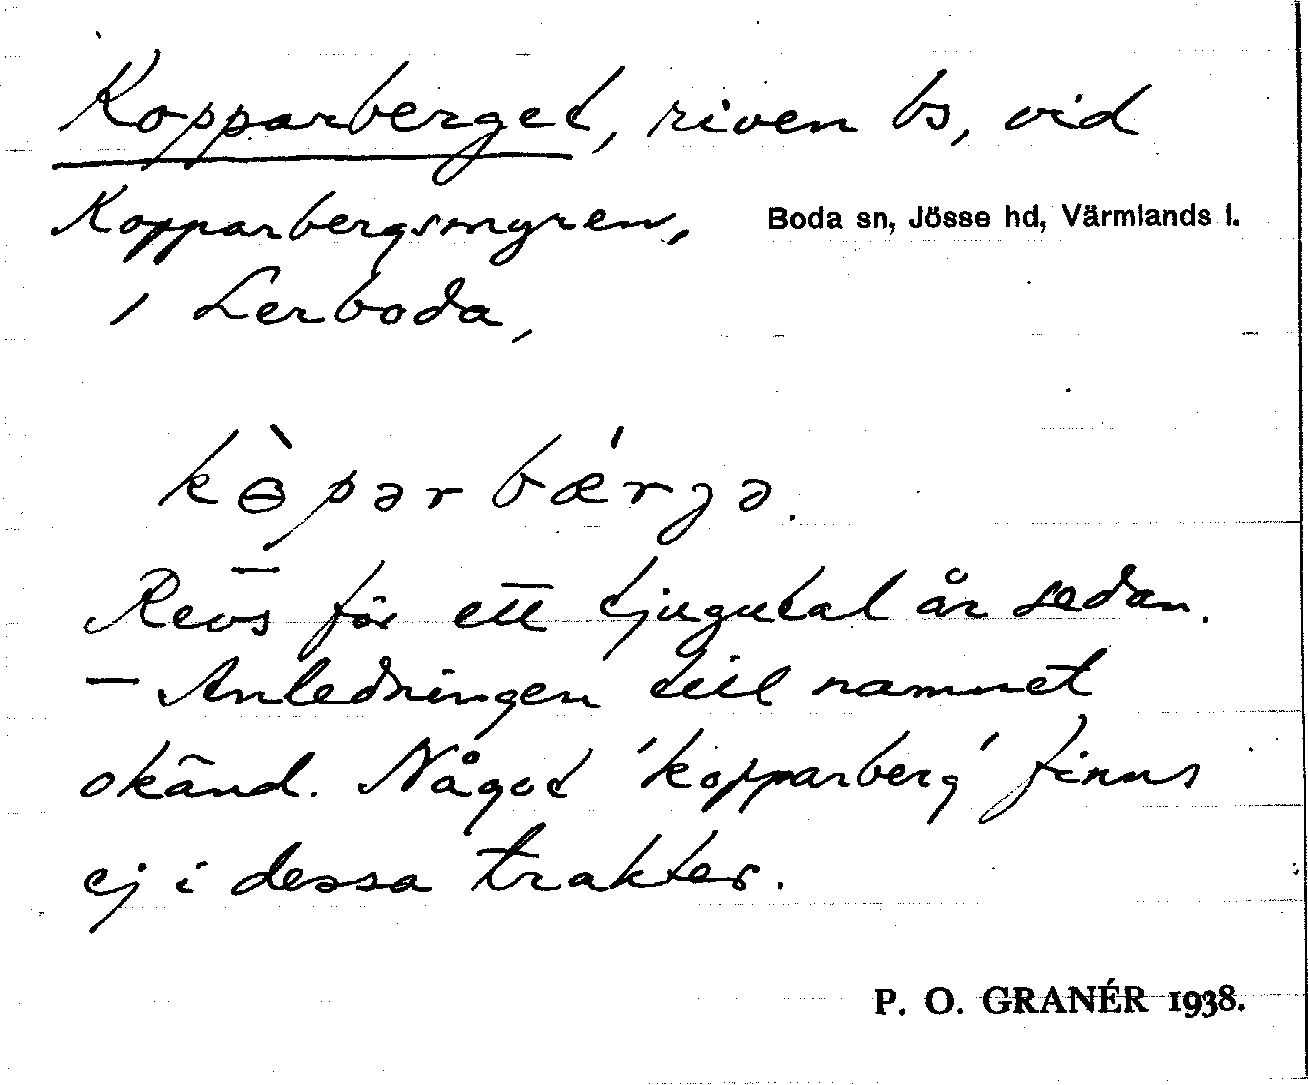 Kopparberget, riven bs, vid
Kopparbergsmyren,
Boda sn, Jösse hd, Värmlands l.
i Lerboda,
kɵ̀pərbǽrjə.
Revs för ett tjugutal år sedan.
— Anledningen till namnet
okänd. Något 'kopparberg' finns
ej i dessa trakter.
P. O. GRANÉR 1938.